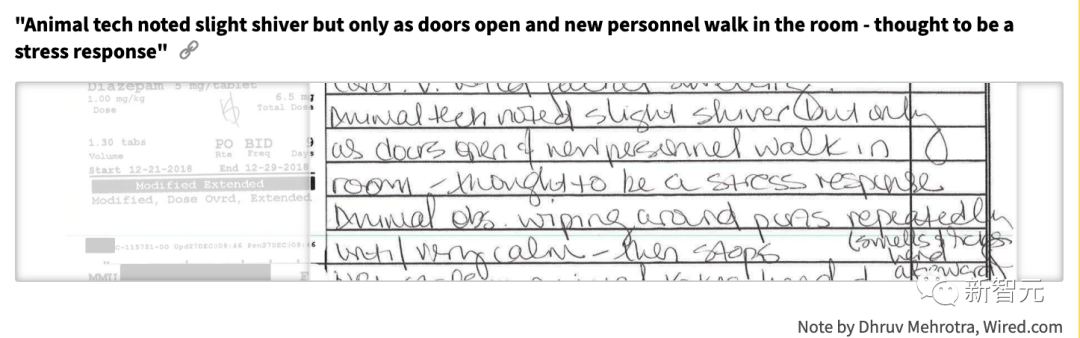 "Animal tech noted slight shiver but only as doors open and new personnel walk in the room - thought to be a
stress response"
Diazepam 5 mg/tablet
1.00 mg/kg 6.5 mg
Dose Total Dose
1.30 tabs PO BID 9
Volume Rte Freq Days
Start 12-21-2018 End 12-29-2018
Modified Extended
Modified, Dose Ovrd, Extended
Animal tech noted slight shiver (but only
as doors open & new personnel walk in
room - thought to be a stress response
Animal obs. wiping around purts repeatedly
until very calm - then stops
(smells & licks
hand
afterward)
新智元
Note by Dhruv Mehrotra, Wired.com